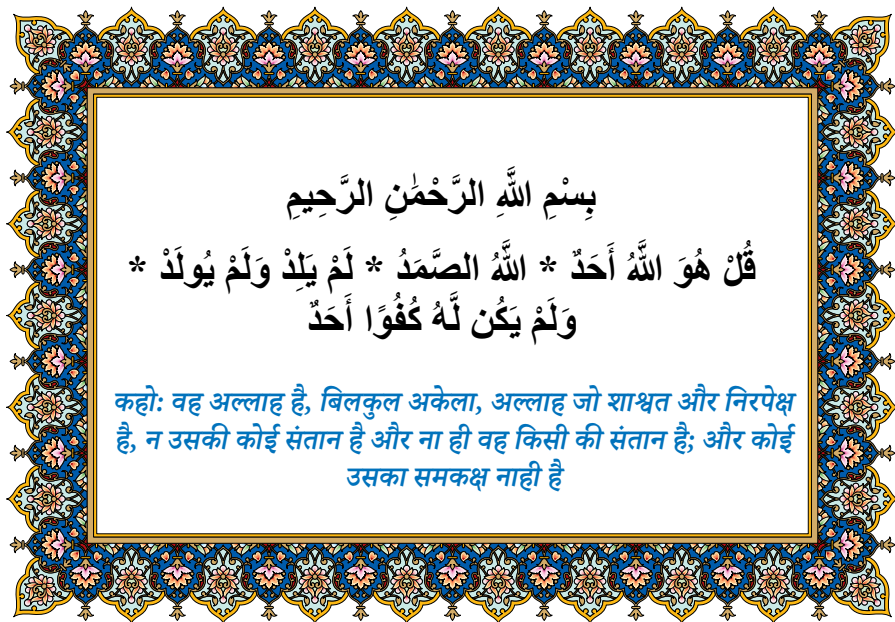 بِسْمِ اللَّهِ الرَّحْمَٰنِ الرَّحِيمِ
قُلْ هُوَ اللَّهُ أَحَدٌ * اللَّهُ الصَّمَدُ * لَمْ يَلِدْ وَلَمْ يُولَدْ *
وَلَمْ يَكُن لَّهُ كُفُوًا أَحَدٌ
कहो: वह अल्लाह है, बिलकुल अकेला, अल्लाह जो शाश्वत और निरपेक्ष
है, न उसकी कोई संतान है और ना ही वह किसी की संतान है; और कोई
उसका समकक्ष नाही है